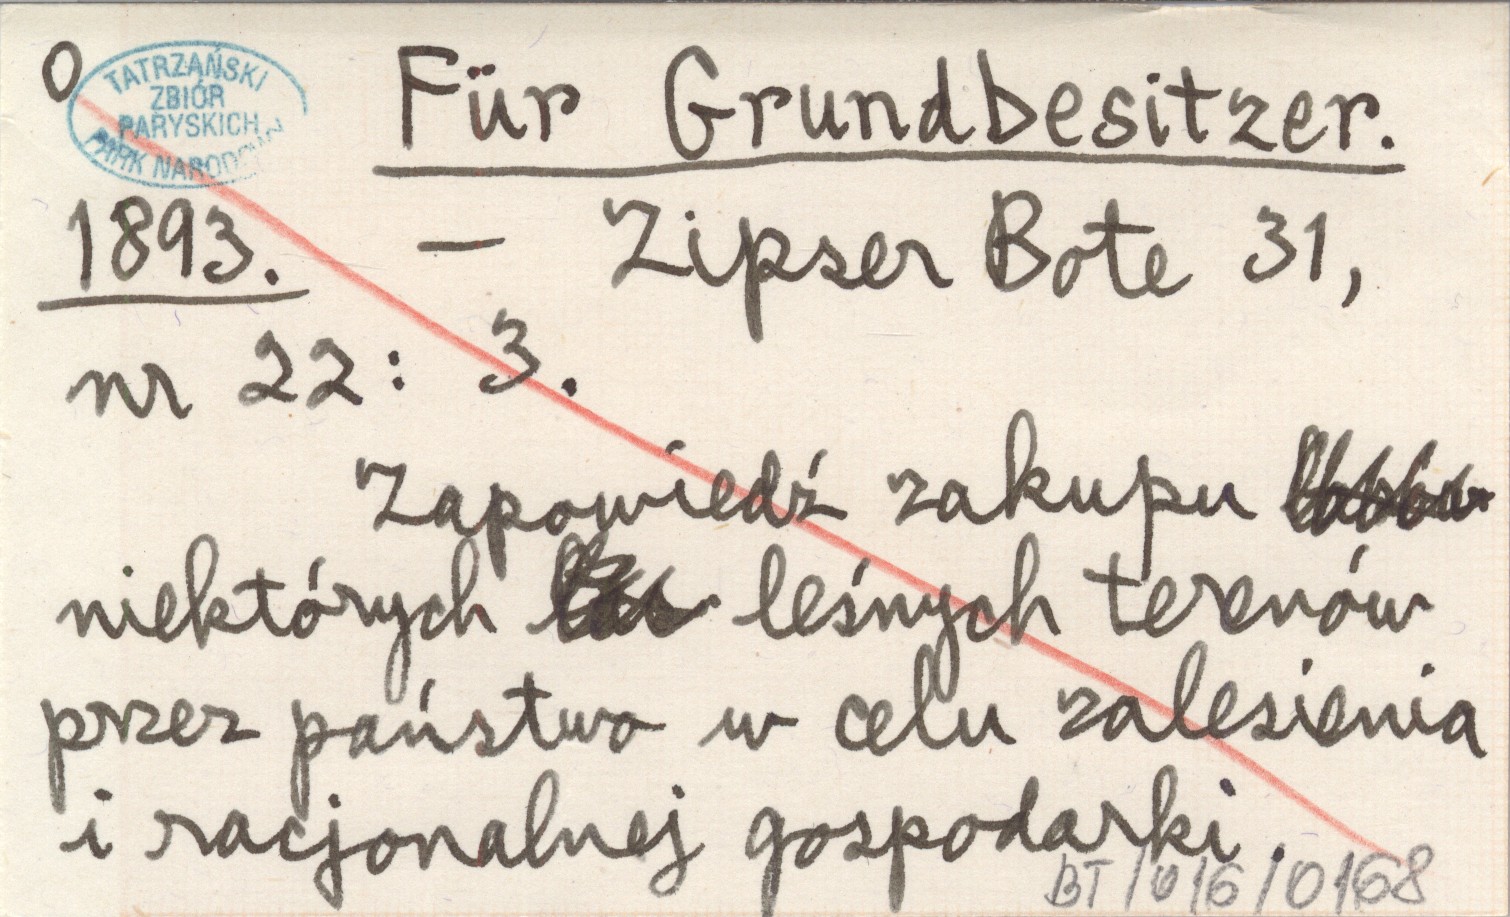 O
TATRZAŃSKI
ZBIÓR
PARYSKICH
PARK
Für Grundbesitzer.
1893. — Zipser Bote 31,
nr 22: 3.
Zapowiedź zakupu
niektórych leśnych terenów
przez państwo w celu zalesienia
i racjonalnej gospodarki.